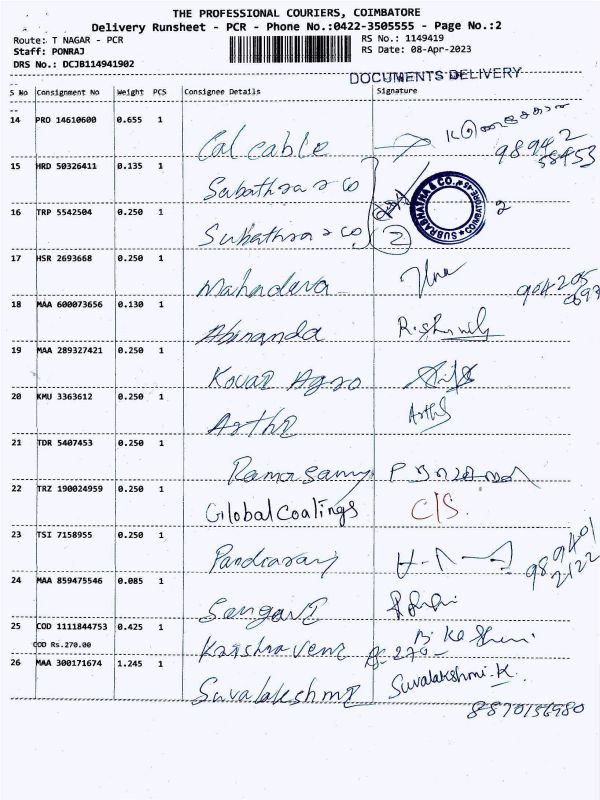 THE PROFESSIONAL COURIERS, COIMBATORE
Delivery Runsheet - PCR - Phone No.:0422-3505555 - Page No.:2
Route: T NAGAR - PCR
RS No.: 1149419
Staff: PONRAJ
RS Date: 08-Apr-2023
DRS No.: DCJB114941902
DOCUMENTS DELIVERY
S No Consignment No Weight PCS Consignee Details Signature
14 PRO 14610600 0.655 1
Cal cable
98942
58453
15 HRD 50326411 0.135 1
Subathra & co
16 TRP 5542504 0.250 1
Subathra & co
2
SUBRABHATHA & CO. COIMBATORE-45
2
17 HSR 2693668 0.250 1
Mahadeva
18 MAA 600073656 0.130 1
Abinanda
19 MAA 289327421 0.250 1
Kovai Agro
20 KMU 3363612 0.250 1
Arthi Arthi
21 TDR 5407453 0.250 1
Ramasamy
22 TRZ 190024959 0.250 1
Global Coatings C/S.
23 TSI 7158955 0.250 1
Pandiaraj
989401
2122
24 MAA 859475546 0.085 1
Sengavi
25 COD 1111844753 0.425 1
COD Rs.270.00
Krishnaveni Rs 270-
26 MAA 300171674 1.245 1
Suvalakshmi Suvalakshmi.K.
8870156980